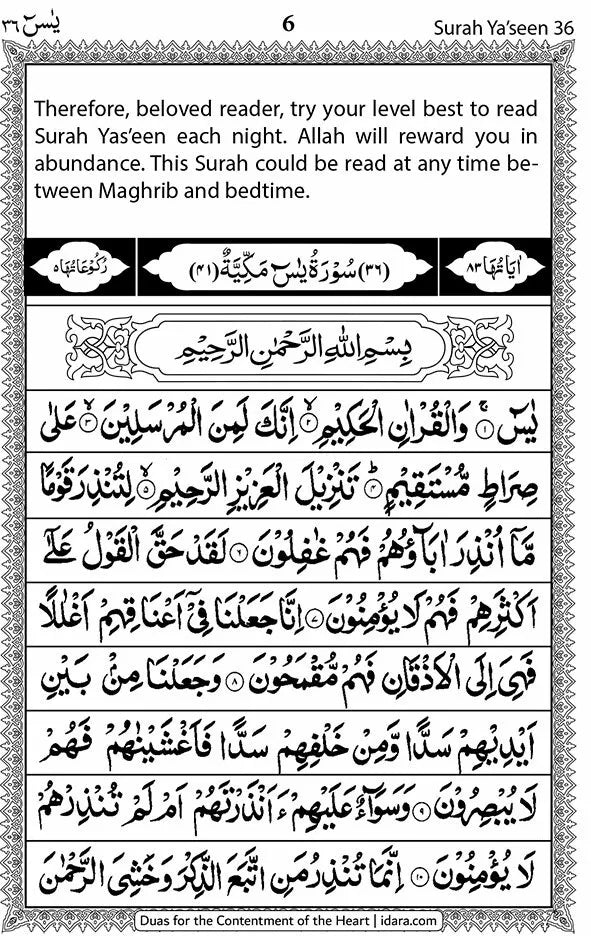 يٰسٓ ٣٦
6
Surah Ya’seen 36
Therefore, beloved reader, try your level best to read
Surah Yas’een each night. Allah will reward you in
abundance. This Surah could be read at any time be-
tween Maghrib and bedtime.
اٰيَاتُهَا ٨٣ (٣٦) سُوْرَةُ يٰسٓ مَكِّيَّةٌ (٤١) رُكُوْعَاتُهَا ٥
بِسْمِ اللهِ الرَّحْمٰنِ الرَّحِيْمِ
يٰسٓ ۚ﴿١﴾ وَالْقُرْاٰنِ الْحَكِيْمِ ۙ﴿٢﴾ اِنَّكَ لَمِنَ الْمُرْسَلِيْنَ ۙ﴿٣﴾ عَلٰى
صِرَاطٍ مُّسْتَقِيْمٍ ؕ﴿٤﴾ تَنْزِيْلَ الْعَزِيْزِ الرَّحِيْمِ ۙ﴿٥﴾ لِتُنْذِرَ قَوْمًا
مَّاۤ اُنْذِرَ اٰبَآؤُهُمْ فَهُمْ غٰفِلُوْنَ ﴿٦﴾ لَقَدْ حَقَّ الْقَوْلُ عَلٰۤى
اَكْثَرِهِمْ فَهُمْ لَا يُؤْمِنُوْنَ ﴿٧﴾ اِنَّا جَعَلْنَا فِيْۤ اَعْنَاقِهِمْ اَغْلٰلًا
فَهِيَ اِلَى الْاَذْقَانِ فَهُمْ مُّقْمَحُوْنَ ﴿٨﴾ وَجَعَلْنَا مِنْۢ بَيْنِ
اَيْدِيْهِمْ سَدًّا وَّمِنْ خَلْفِهِمْ سَدًّا فَاَغْشَيْنٰهُمْ فَهُمْ
لَا يُبْصِرُوْنَ ﴿٩﴾ وَسَوَآءٌ عَلَيْهِمْ ءَاَنْذَرْتَهُمْ اَمْ لَمْ تُنْذِرْهُمْ
لَا يُؤْمِنُوْنَ ﴿١٠﴾ اِنَّمَا تُنْذِرُ مَنِ اتَّبَعَ الذِّكْرَ وَخَشِيَ الرَّحْمٰنَ
Duas for the Contentment of the Heart | idara.com